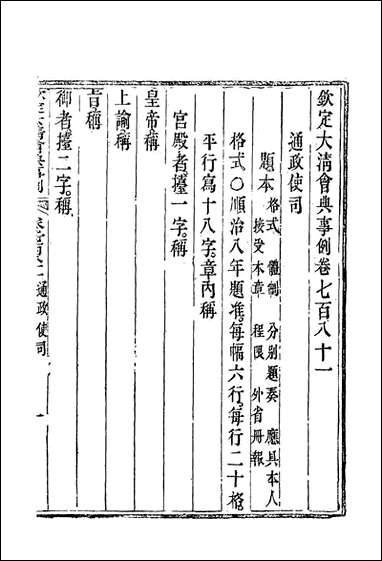 欽定大淸會典事例卷七百八十一
通政使司
題本格式 體制 分別題奏 應具本人
接受本章 程限 外省冊報
格式○順治八年題准。每幅六行。每行二十格。
平行寫十八字。章內稱
宮殿者。擡一字。稱
皇帝。稱
上諭。稱
旨。稱
御者。擡二字。稱
通政使司